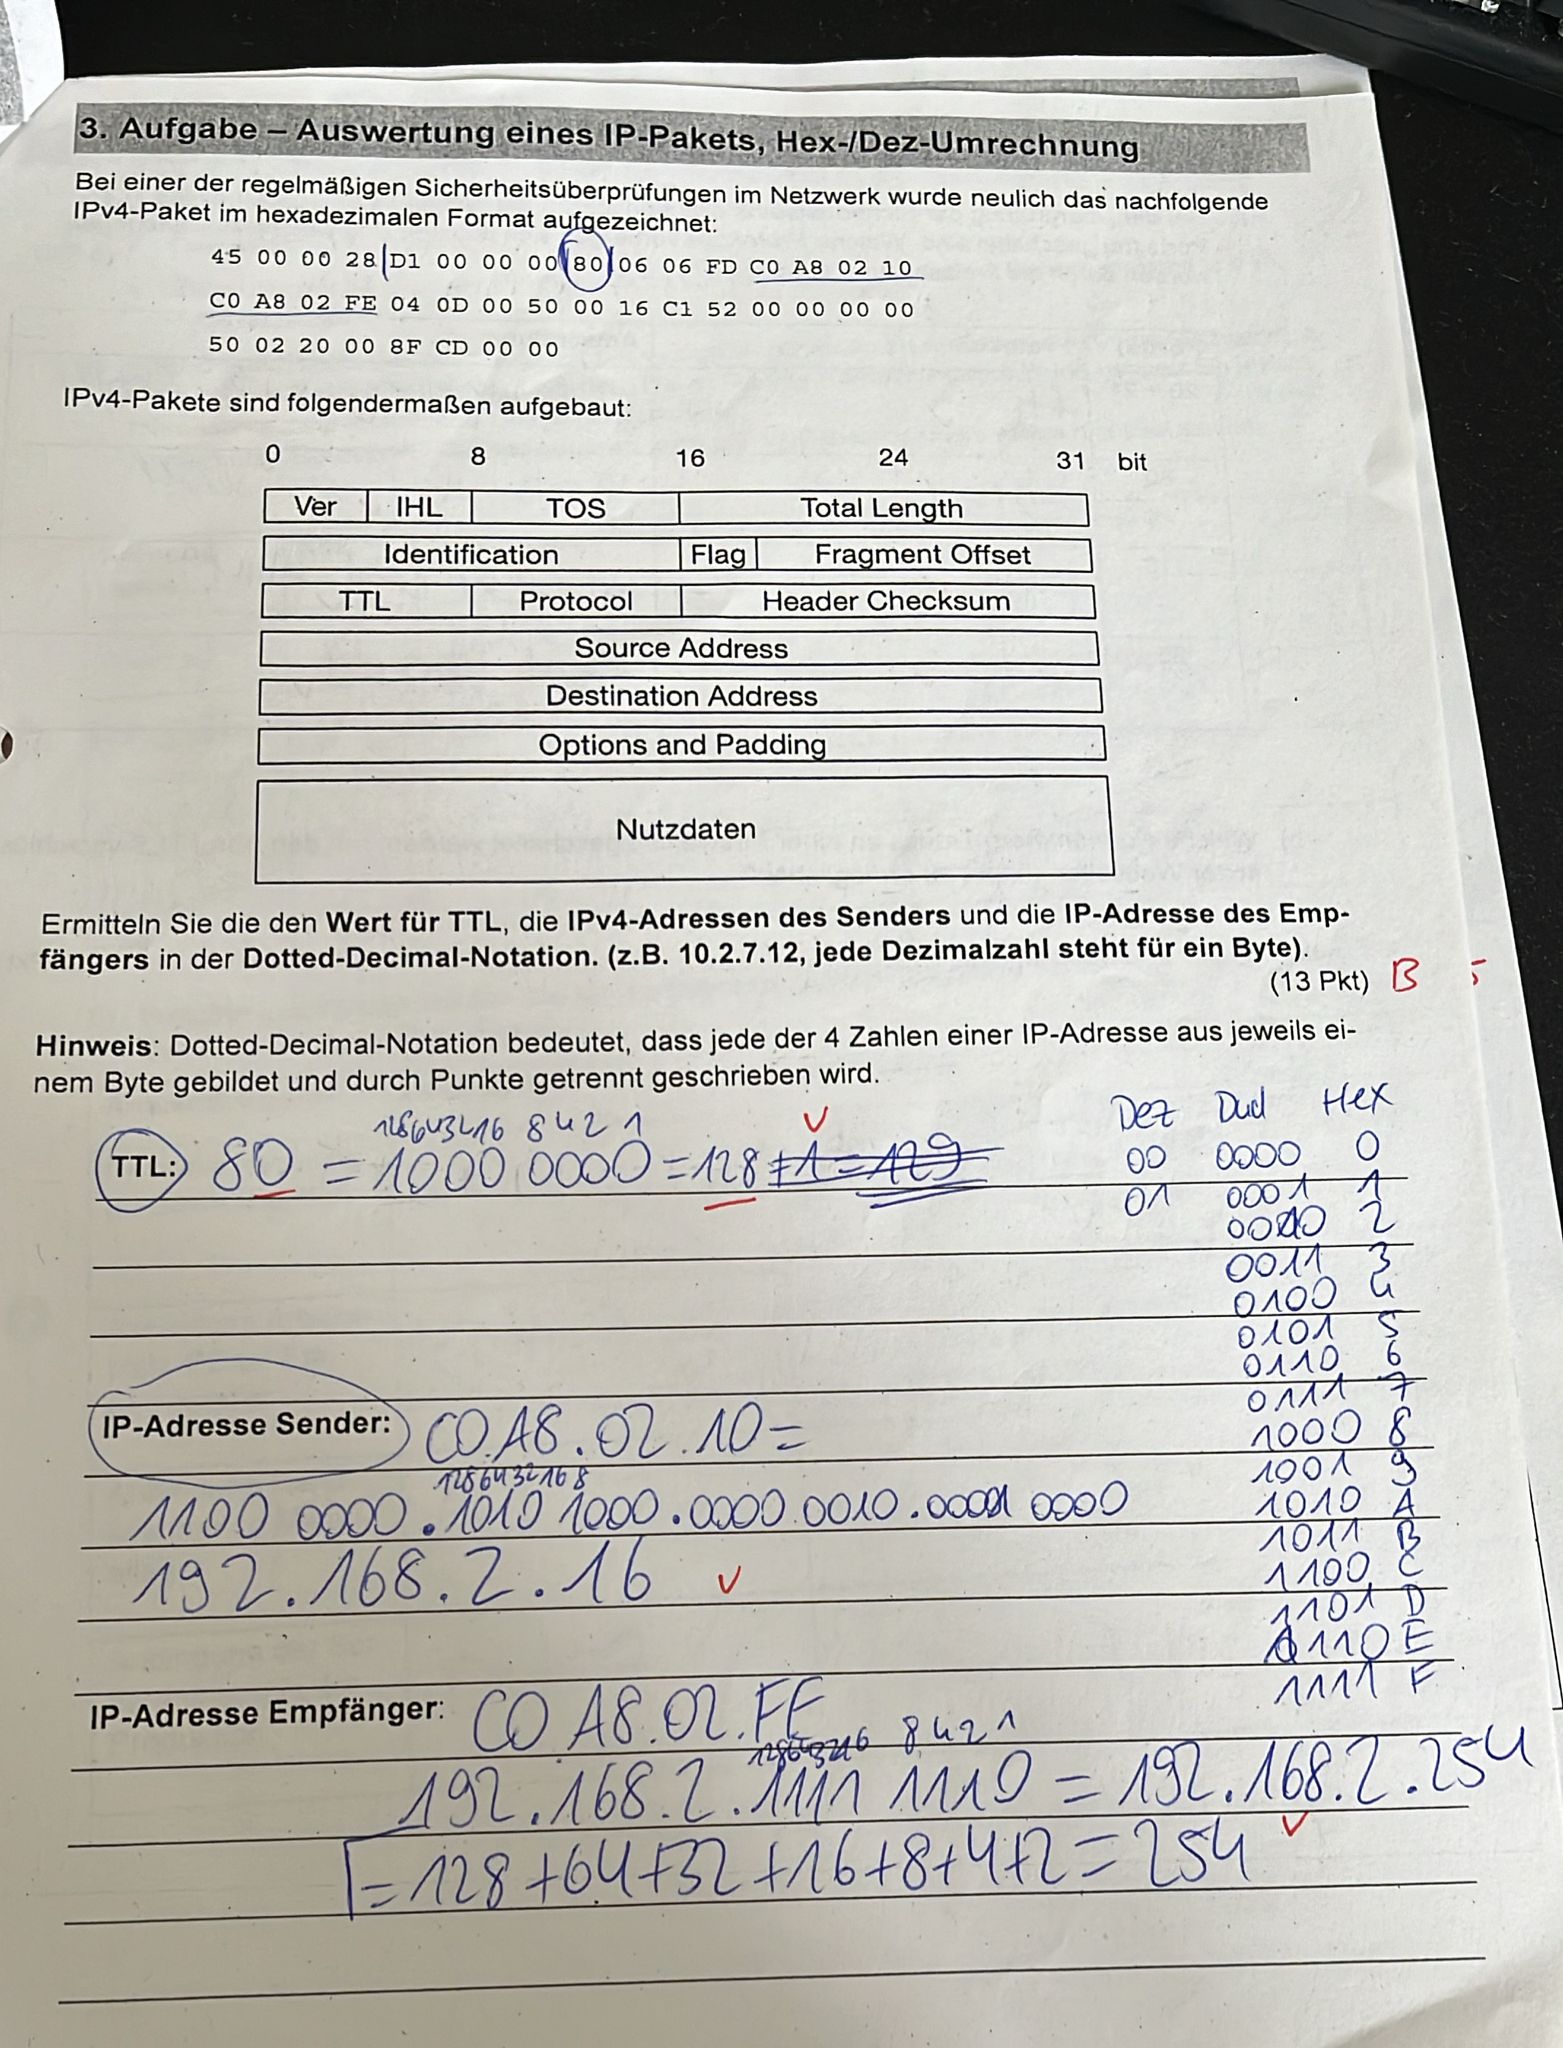 3. Aufgabe – Auswertung eines IP-Pakets, Hex-/Dez-Umrechnung
Bei einer der regelmäßigen Sicherheitsüberprüfungen im Netzwerk wurde neulich das nachfolgende
IPv4-Paket im hexadezimalen Format aufgezeichnet:
45 00 00 28 D1 00 00 00 80 06 06 FD C0 A8 02 10
C0 A8 02 FE 04 0D 00 50 00 16 C1 52 00 00 00 00
50 02 20 00 8F CD 00 00
IPv4-Pakete sind folgendermaßen aufgebaut:
0 8 16 24 31 bit
Ver IHL TOS Total Length
Identification Flag Fragment Offset
TTL Protocol Header Checksum
Source Address
Destination Address
Options and Padding
Nutzdaten
Ermitteln Sie die den Wert für TTL, die IPv4-Adressen des Senders und die IP-Adresse des Emp-
fängers in der Dotted-Decimal-Notation. (z.B. 10.2.7.12, jede Dezimalzahl steht für ein Byte).
(13 Pkt) 13
Hinweis: Dotted-Decimal-Notation bedeutet, dass jede der 4 Zahlen einer IP-Adresse aus jeweils ei-
nem Byte gebildet und durch Punkte getrennt geschrieben wird.
Dez Dual Hex
128 64 32 16 8 4 2 1
TTL: 80 = 1000 0000 = 128 +1 = 129
00 0000 0
01 0001 1
0010 2
0011 3
0100 4
0101 5
0110 6
0111 7
1000 8
1001 9
1010 A
1011 B
1100 C
1101 D
1110 E
1111 F
IP-Adresse Sender: C0.A8.02.10=
128 64 32 16 8
1100 0000.1010 1000.0000 0010.0001 0000
192.168.2.16
IP-Adresse Empfänger: C0 A8.02.FE
128 64 32 16 8 4 2 1
192.168.2.1111 1110 = 192.168.2.254
= 128+64+32+16+8+4+2=254